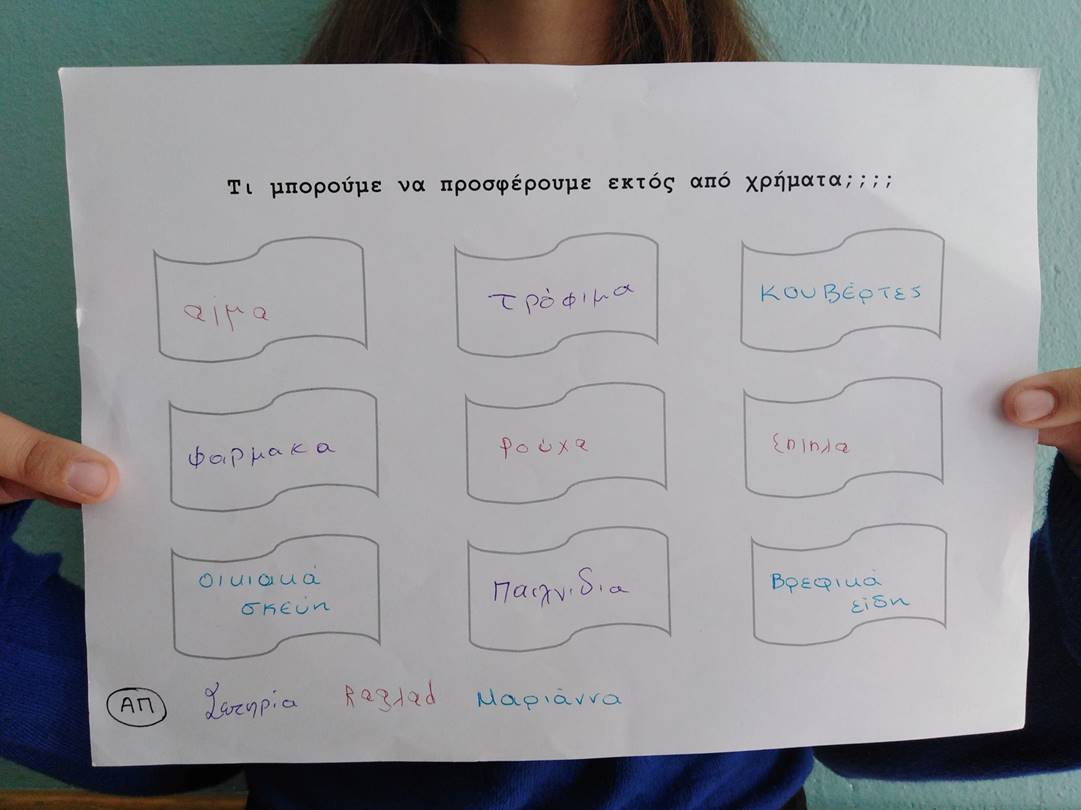 Τι μπορούμε να προσφέρουμε εκτός από χρήματα;;;;
αίμα
τρόφιμα
κουβέρτες
φαρμακα
ρούχα
έπιπλα
οικιακά
σκεύη
παιχνιδια
Βρεφικά
είδη
ΑΠ Σωτηρία Μαριάννα